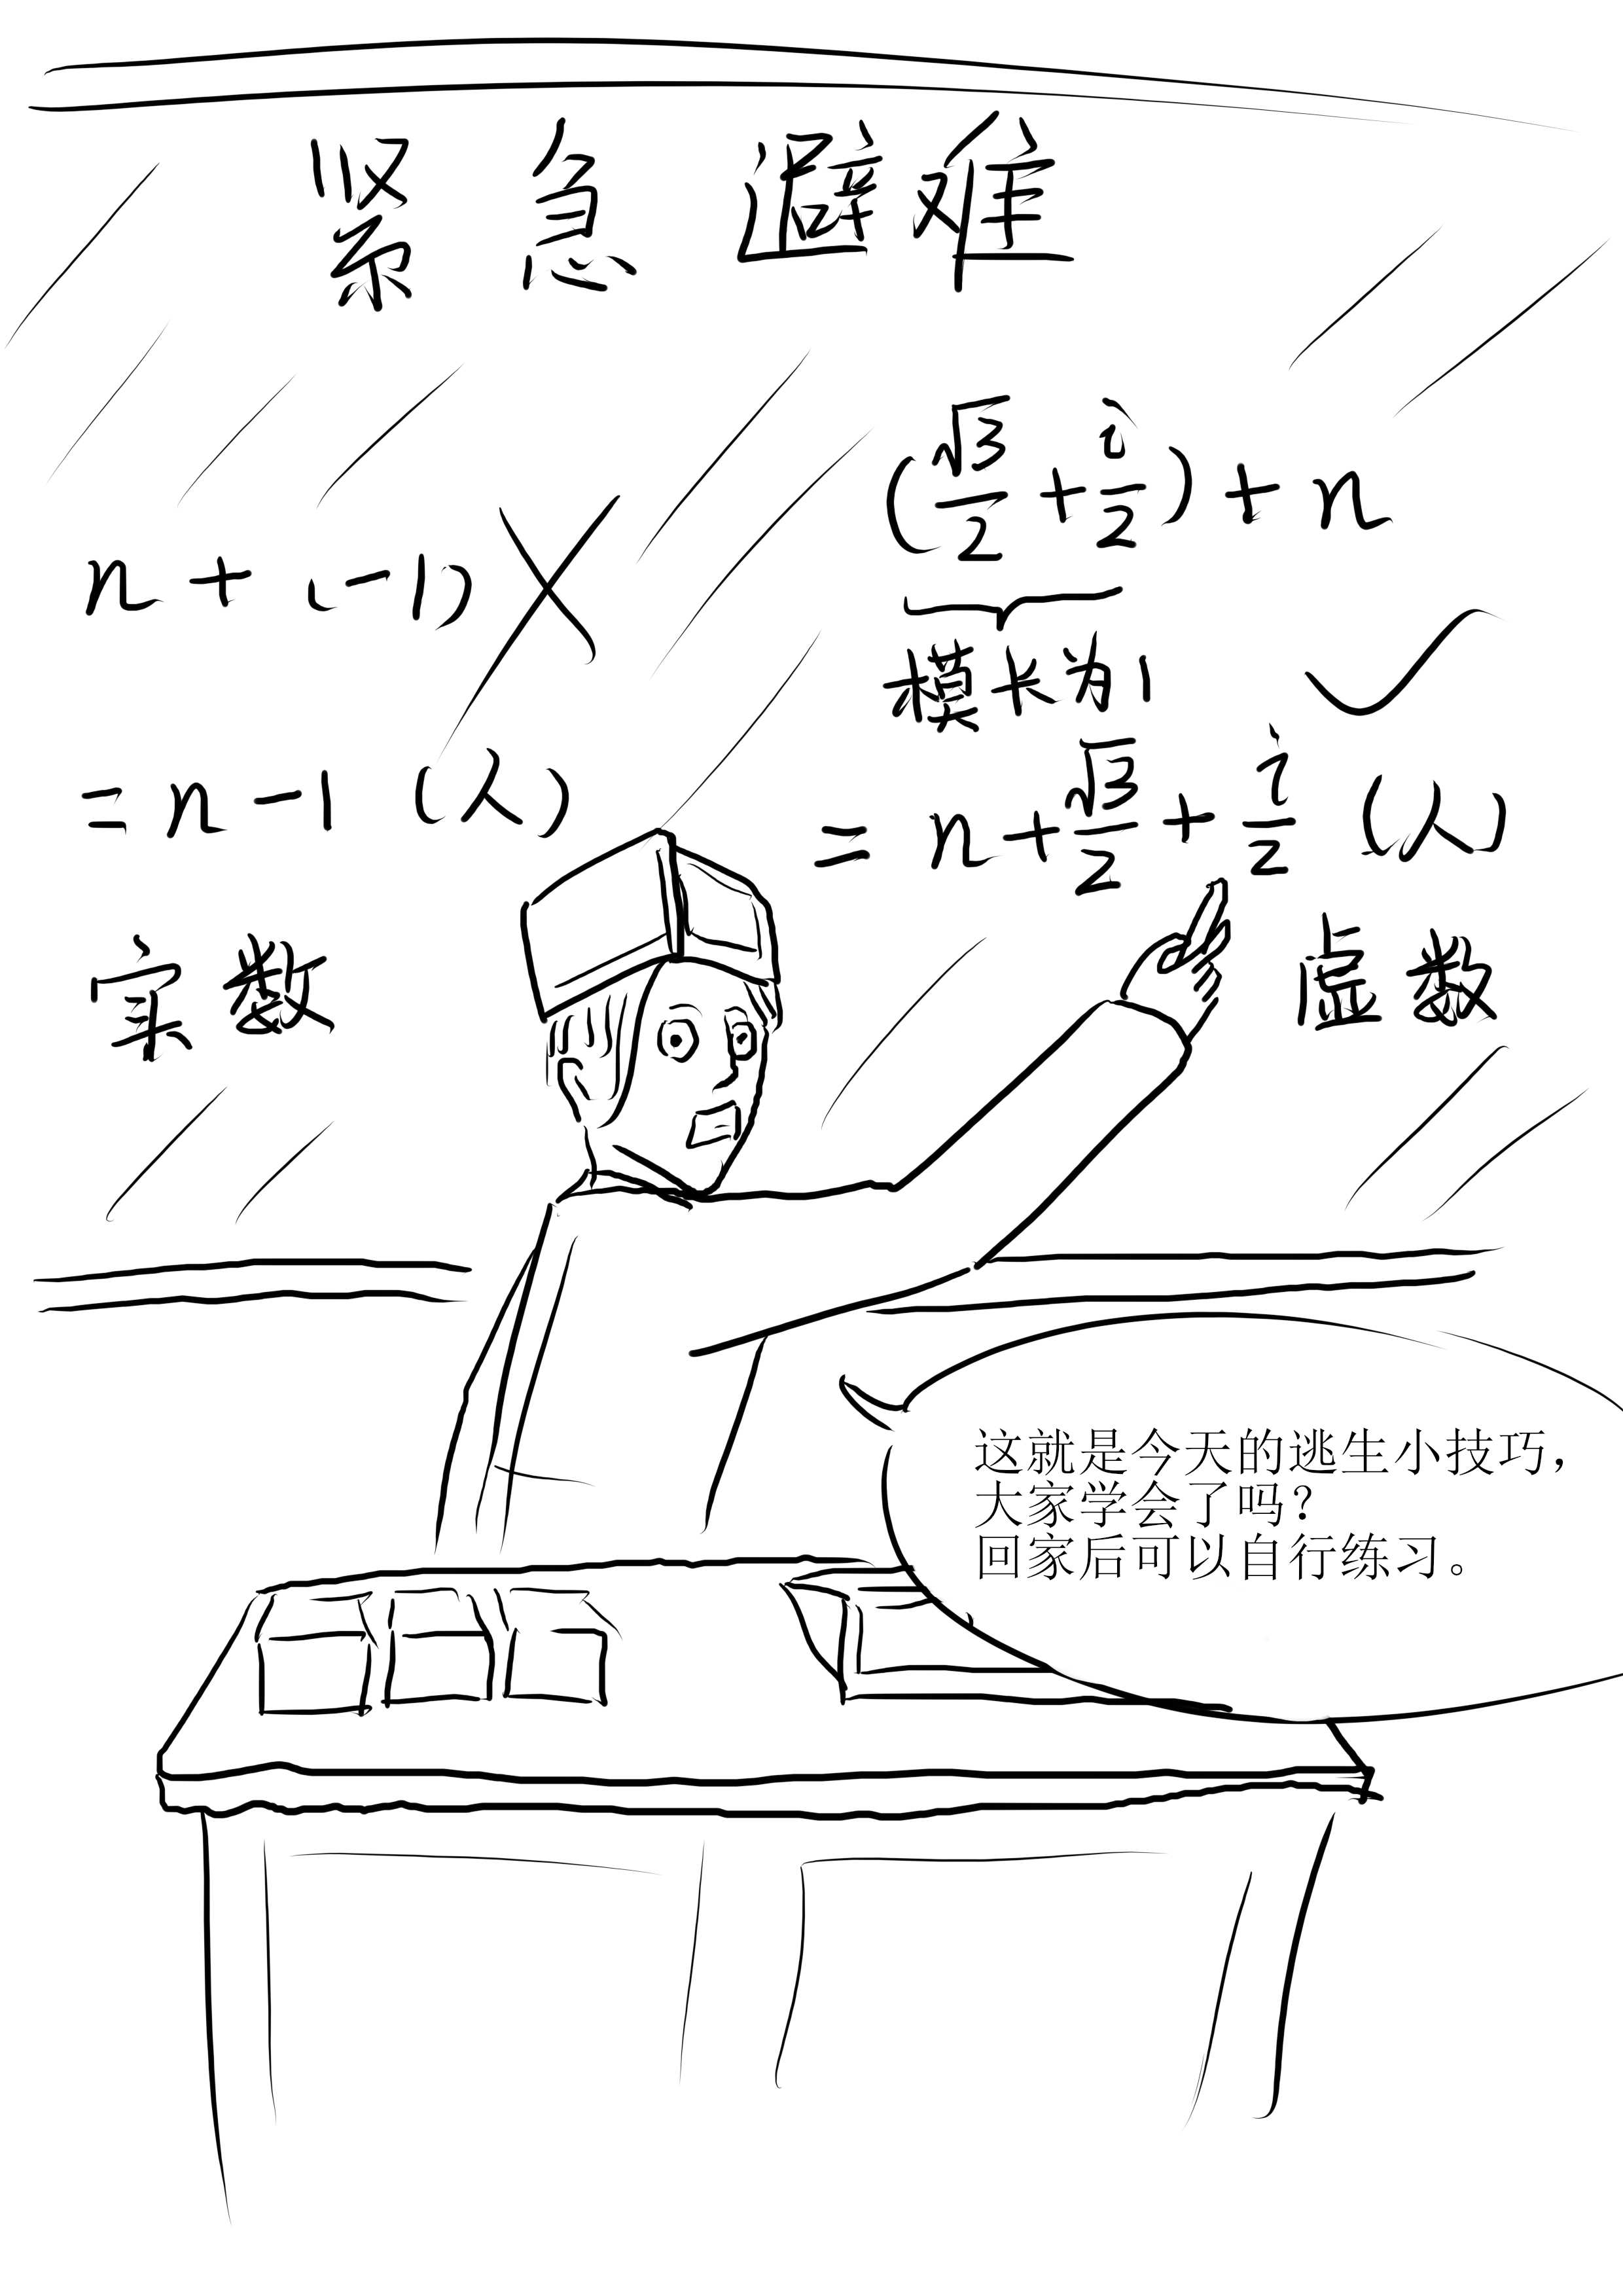 紧急避难
n + (-1)
= n - 1 (人)
实数
(√3/2 + i/2) + n
模长为1
= n + √3/2 + i/2 (人)
虚数
这就是今天的逃生小技巧，
大家学会了吗？
回家后可以自行练习。